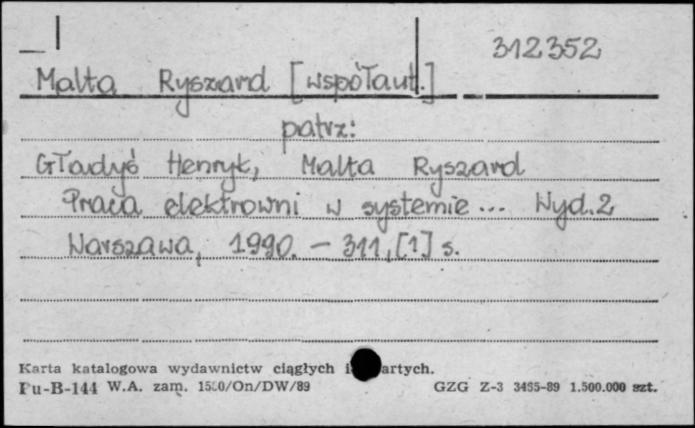 312352
Malta Ryszard [współaut.]
patrz:
Gładyś Henryk, Malta Ryszard
Praca elektrowni w systemie... Wyd.2
Warszawa, 1990. - 311, [1] s.
Karta katalogowa wydawnictw ciągłych i artych.
Pu-B-144 W.A. zam. /On/DW/89 GZG Z-3 3485-89 1.500.000 szt.